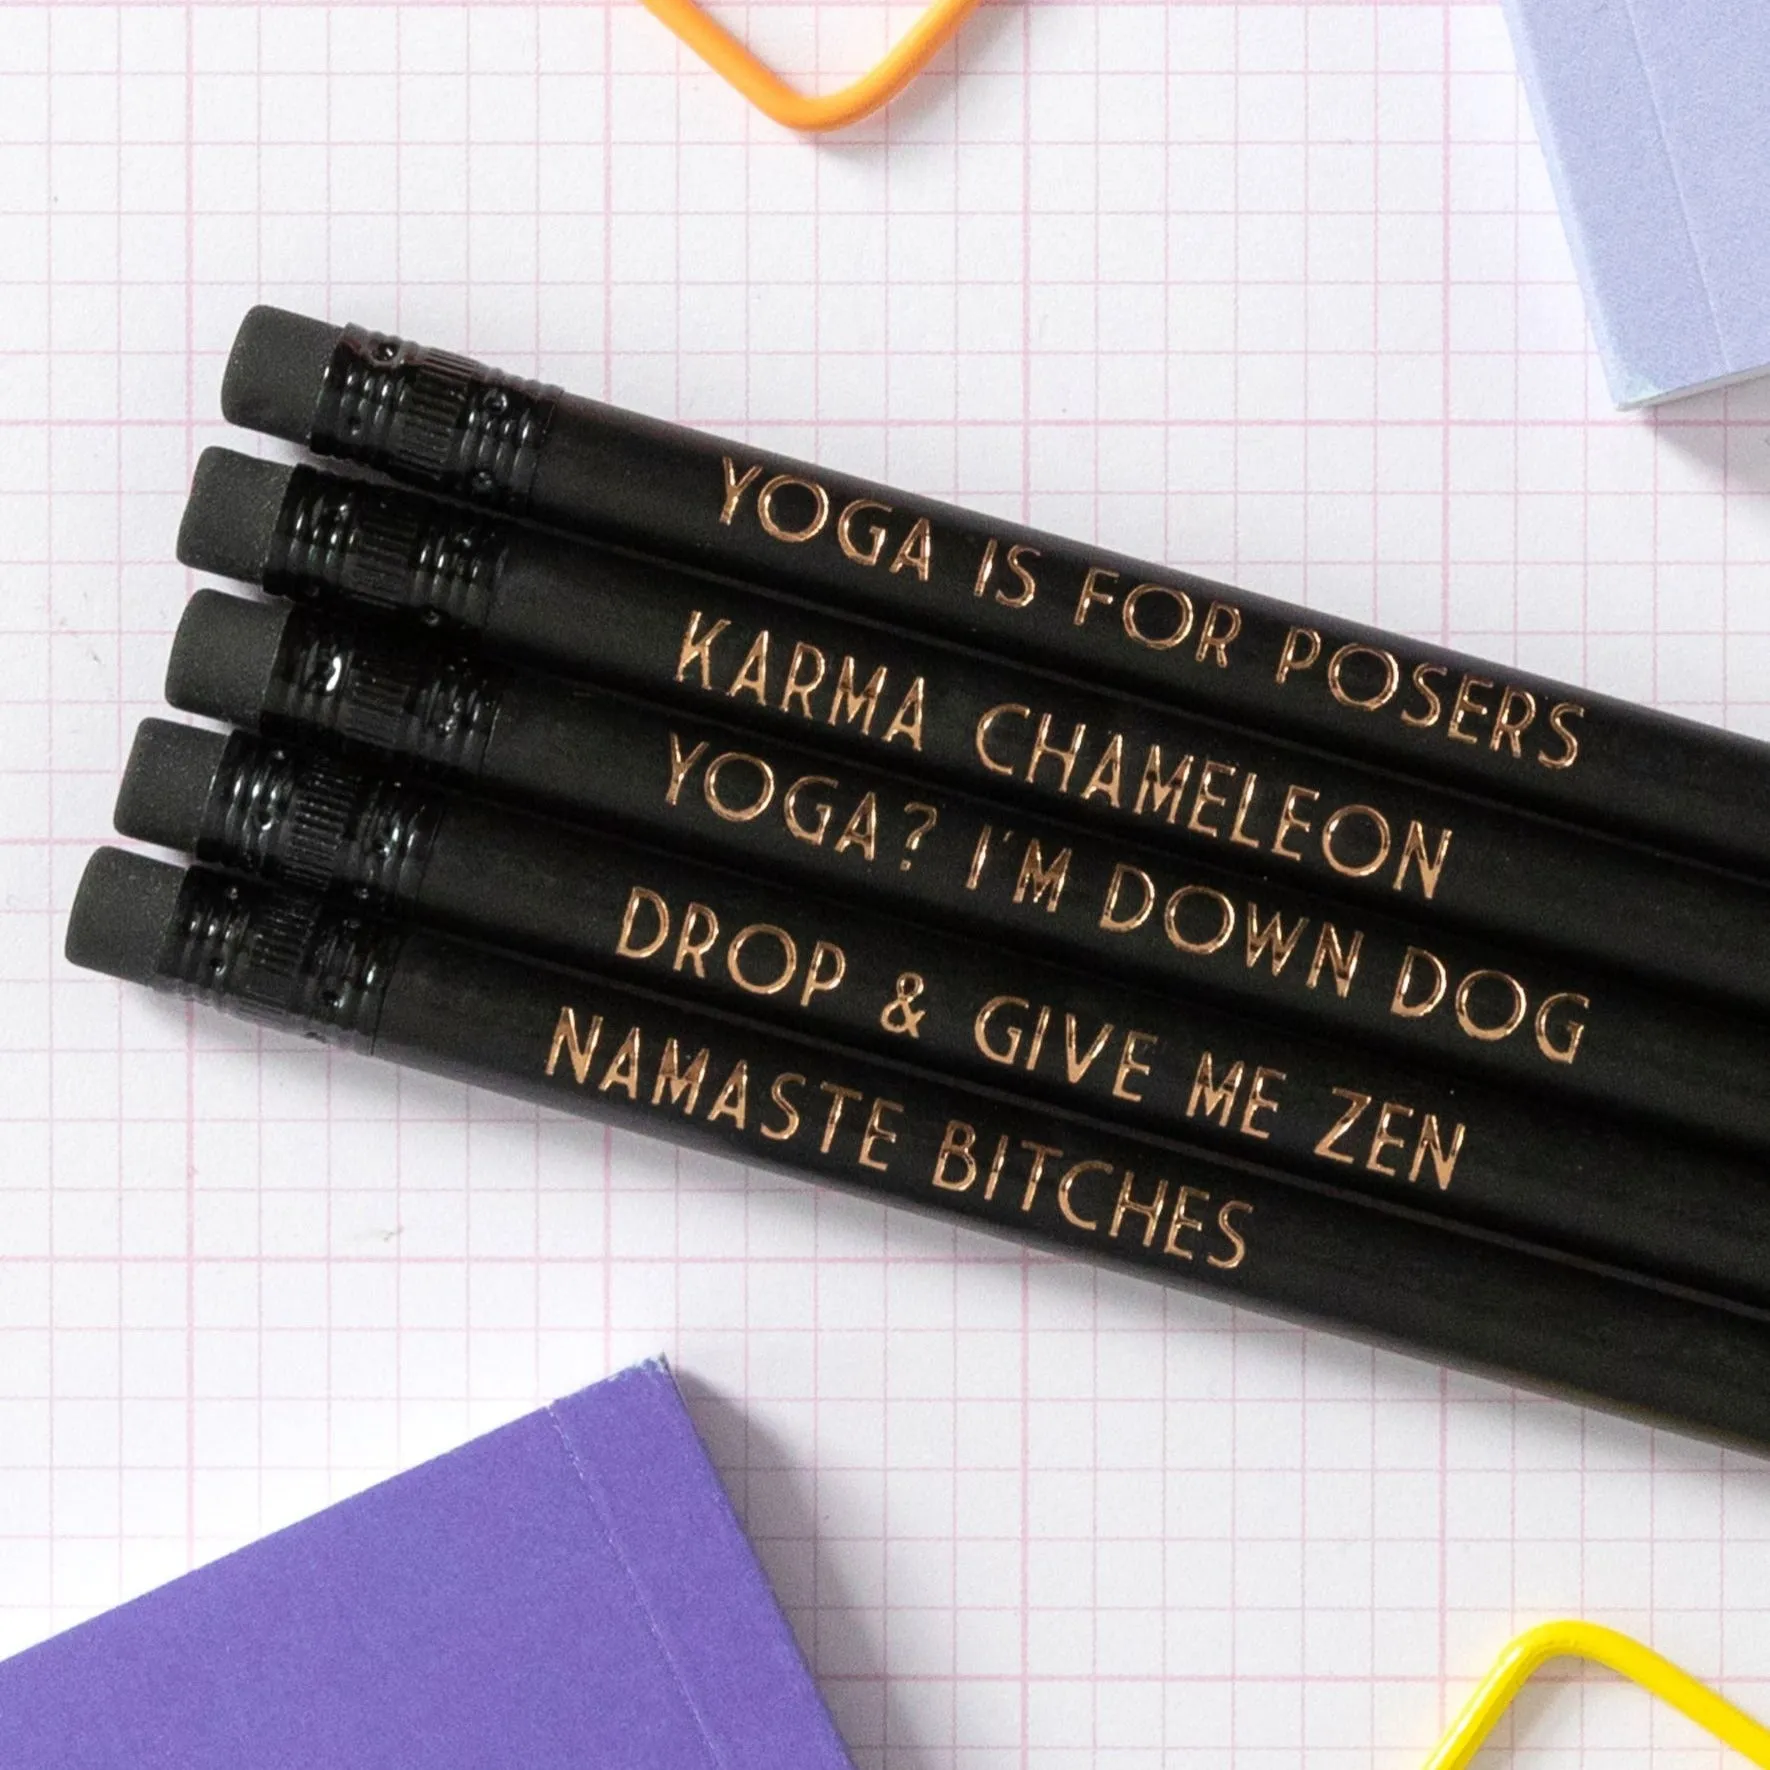 YOGA IS FOR POSERS
KARMA CHAMELEON
YOGA? I'M DOWN DOG
DROP & GIVE ME ZEN
NAMASTE BITCHES